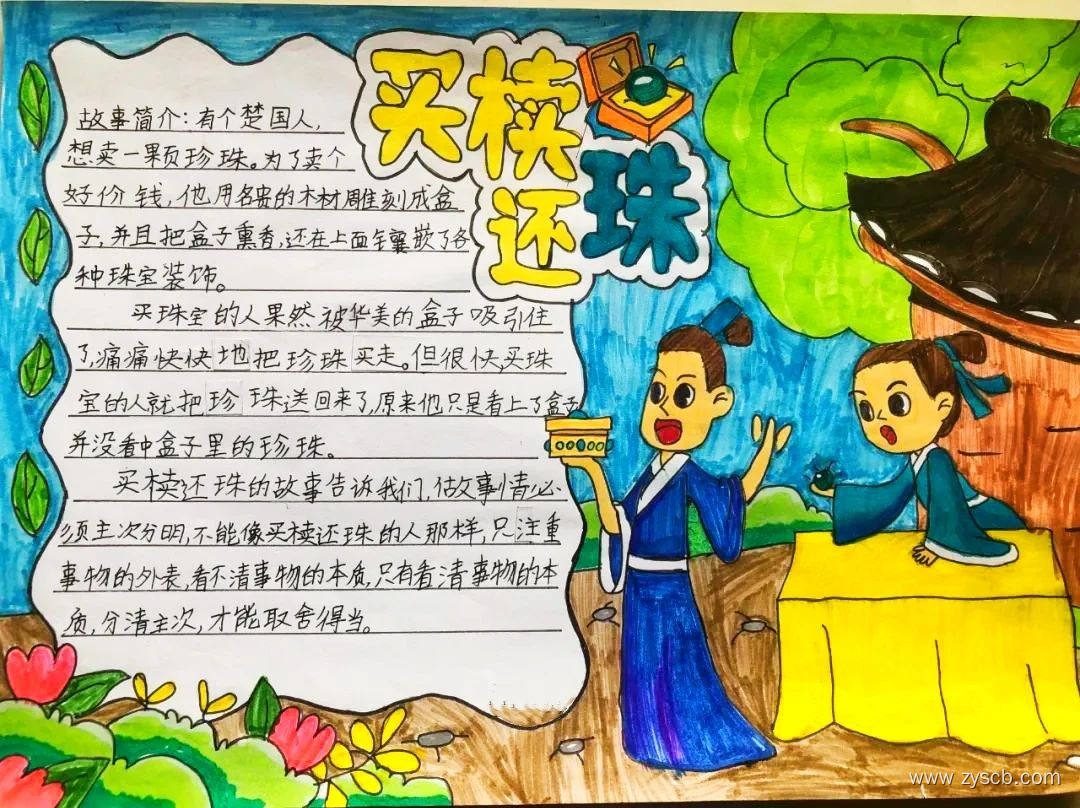 买椟
还珠
故事简介：有个楚国人，
想卖一颗珍珠。为了卖个
好价钱，他用名贵的木材雕刻成盒
子，并且把盒子熏香，还在上面镶嵌了各
种珠宝装饰。
买珠宝的人果然被华美的盒子吸引住
了，痛痛快快地把珍珠买走。但很快，买珠
宝的人就把珍珠送回来了，原来他只是看上了盒子
并没看中盒子里的珍珠。
买椟还珠的故事告诉我们，做事情必
须主次分明，不能像买椟还珠的人那样，只注重
事物的外表，看不清事物的本质，只有看清事物的本
质，分清主次，才能取舍得当。
www.zyscb.com